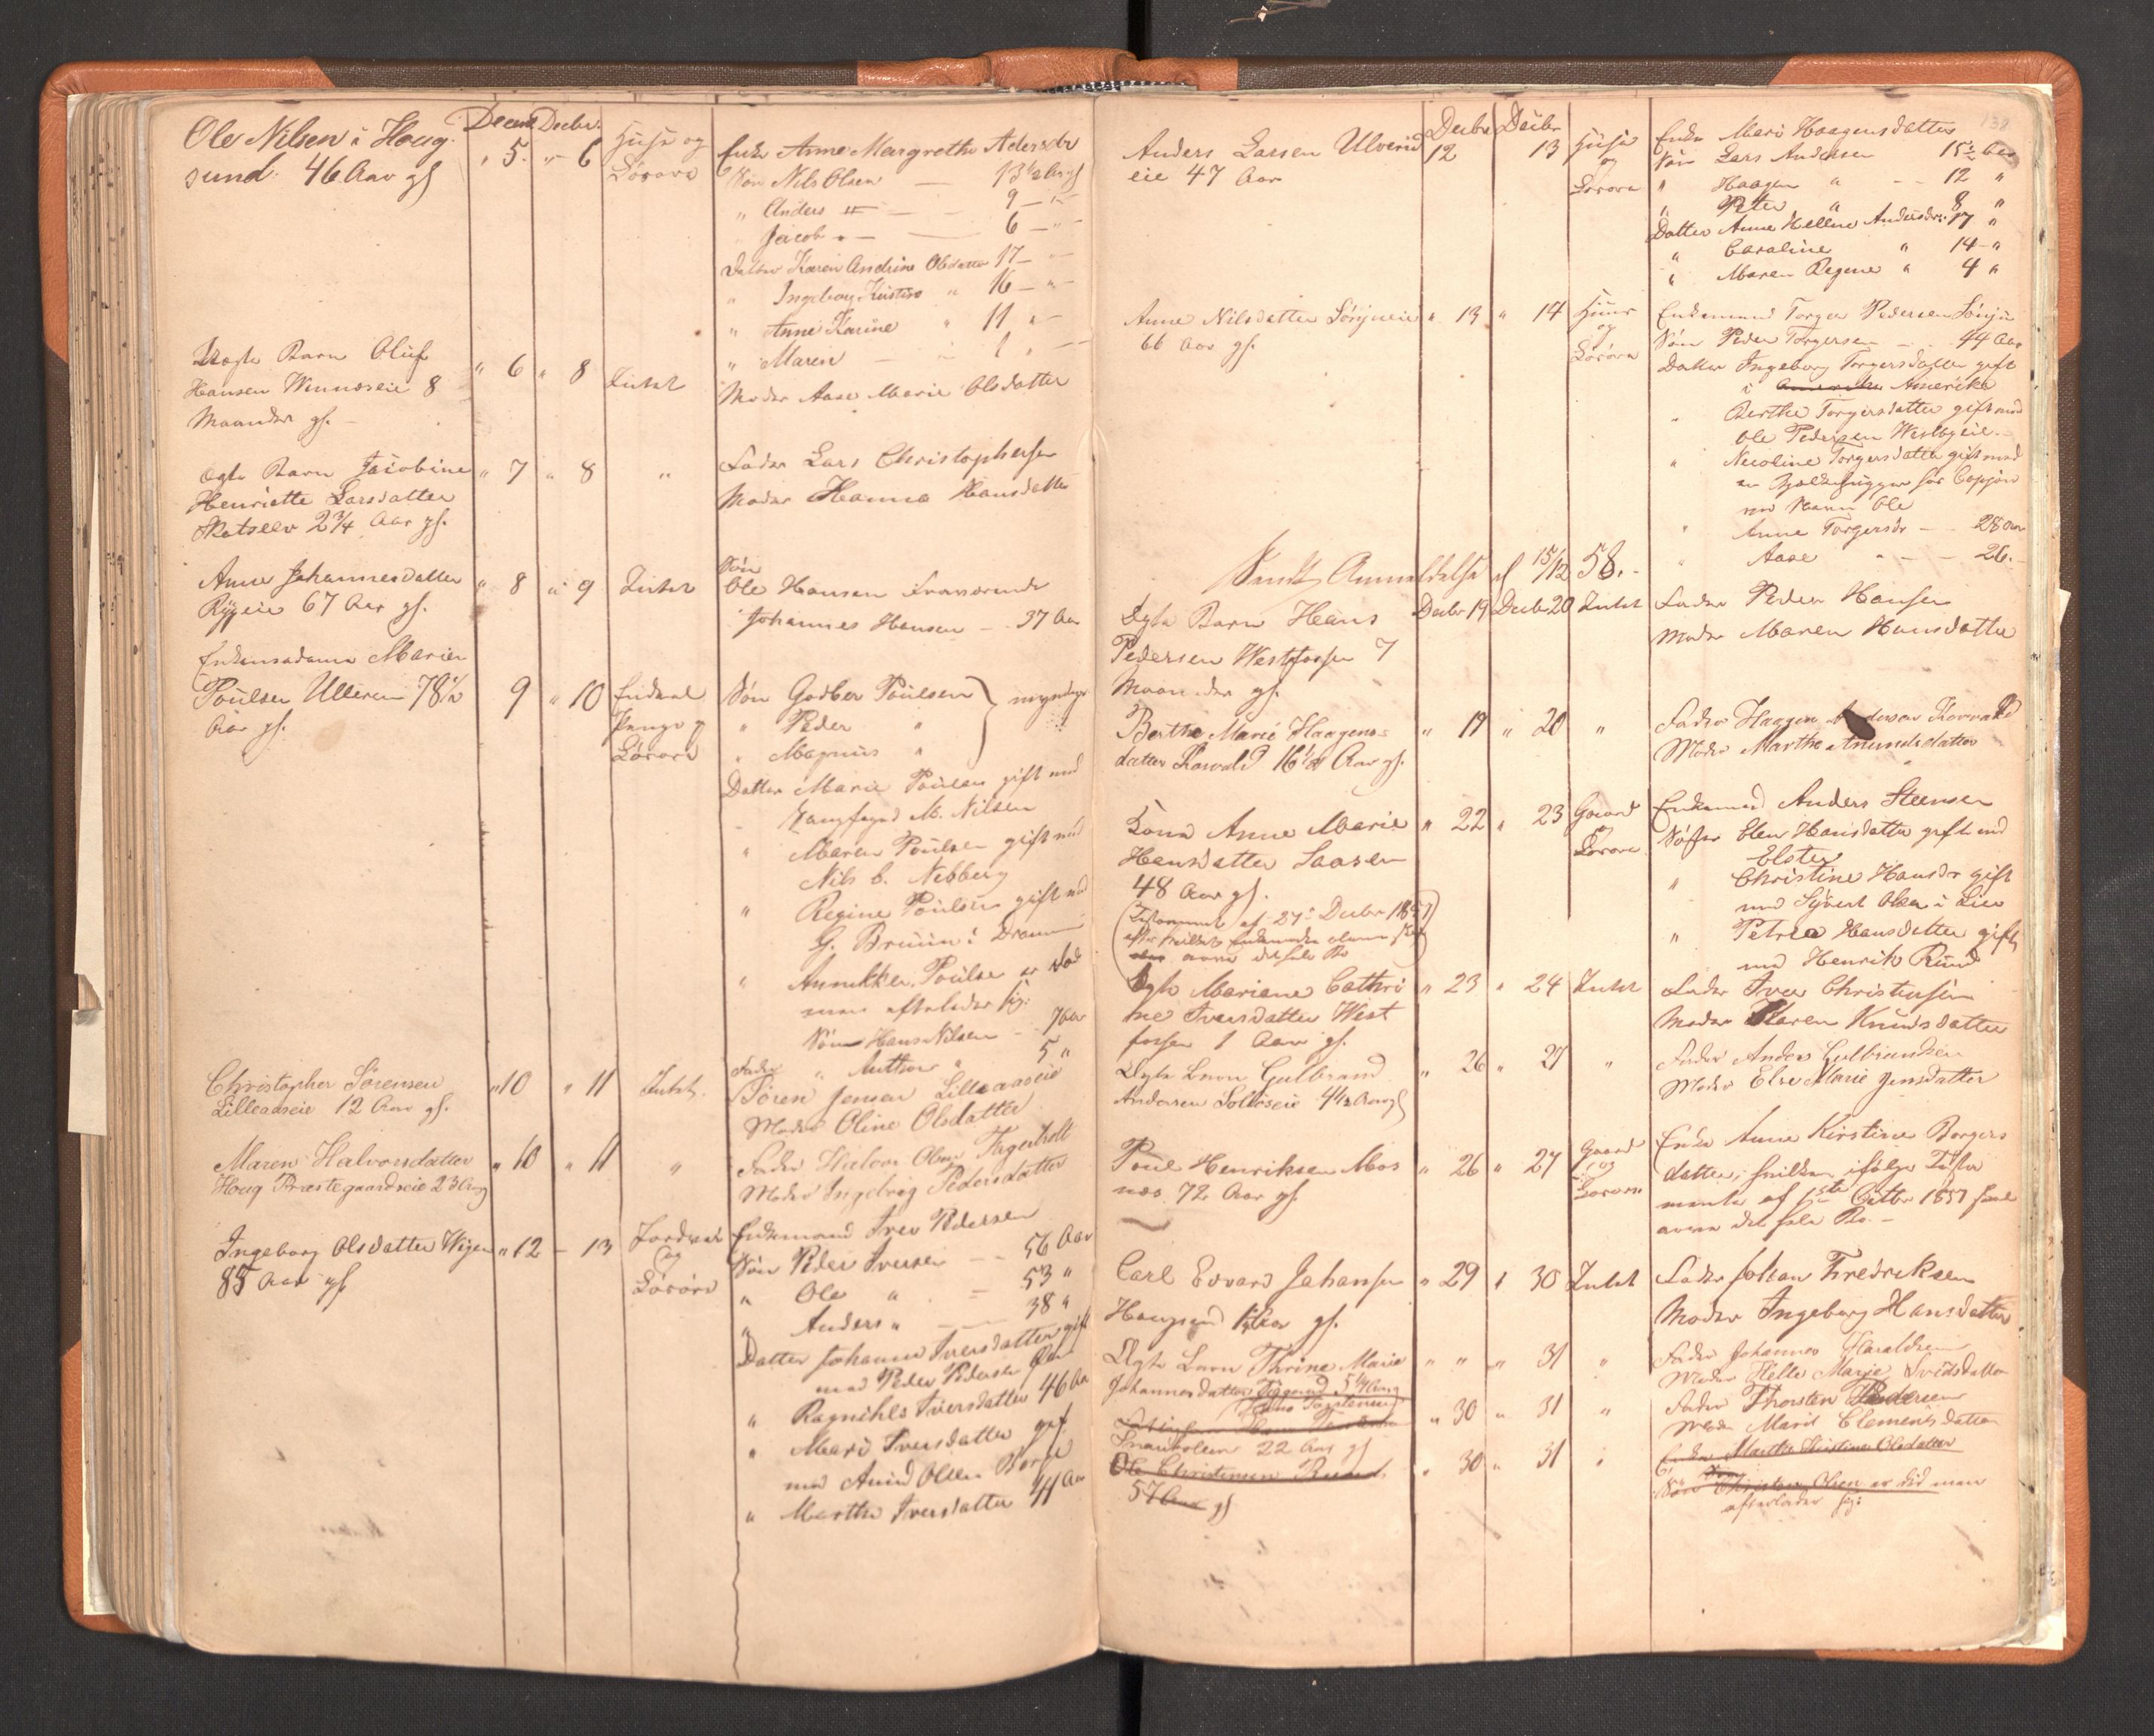 Ole Nilsen i Houg-
sund. 46 Aar gl
Decem Decbr.
" 5. " 6
Huse og
Løsøre
Enke Anne Margrethe Andersdr
Søn Nils Olsen — 13½ Aar gl
" Anders " — 9 — "
" Jacob " — 6 — "
Datter Karen Andrine Olsdatter 17 — "
" Ingeborg Kirstine " 16 — "
" Anne Karine " 11 " —
" Maren — " 1 " —
Uægte Barn Oluf
Hansen Winnæseie 8
Maander gl. —
" 6 " 8 Intet
Moder Aase Marie Olsdatter
Ægte Barn Jacobine
Henriette Larsdatter
Skotselv 2¾ Aar gl.
" 7 " 8 "
Fader Lars Christophersen
Moder Hanna Hansdatter
Anne Johannesdatter
Ryggeie 67 Aar gl.
" 8 " 9 Intet
Søn
Ole Hansen fraværende
Johannes Hansen — 37 Aar
Enkemadame Maren
Poulsen Ulleren 78½
Aar gl.
9 " 10
Endeel
Penge og
Løsøre
Søn Godber Poulsen } myndige
" Peder "
" Magnus "
Datter Marie Poulsen gift med
M. Nilsen
" Maren Poulsen gift med
Nils C. Nebberg
" Regine Poulsen gift med
G. Bruun i Drammen
" Poulsen er død
men efterlader sig:
Søn Hans Nilsen — 7 Aar
" Anthon " 5 "
Christopher Sørensen
Lilleaaseie 12 Aar gl.
" 10 " 11 Intet.
Fader
Søren Jensen Lilleaaseie
Moder Oline Olsdatter
Maren Halvorsdatter
Houg Præstegaardseie 23 Aar gl
" 10 " 11 "
Fader Halvor Olsen Fagerholt
Moder Ingeborg Pedersdatter
Ingeborg Olsdatter Wigen
85 Aar gl
" 12 — 13
og
Løsøre
Enkemand Iver Pedersen
Søn Peder Iversen — — 56 Aar
" Ole " — 53 "
" Anders " — — 38 "
Datter Johanne Iversdatter gift
med Peder Pedersen
" Ragnhild Iversdatter 46 Aar
" Mari Iversdatter gift
med Amund Olsen Borge
" Marthe Iversdatter 41 Aar
138
Anders Larsen Ulverud
eie 47 Aar
Decbr Decbr
12 13
Huse
og
Løsøre
Enke Mari Haagensdatter
Søn Lars Andersen 15½ Aar
" Haagen " — — 12 "
" Peter " 8 "
Datter Anne Helene Andersdr. 17 "
" Caroline " 14 — "
" Maren Regine " 4 "
Anne Nilsdatter Sønjueeie
66 Aar gl.
" 13 " 14
Huus
og
Løsøre
Enkemand Torger Pedersen Sønju
Søn Peder Torgersen — . 44 Aar
Datter Ingeborg Torgersdatter gift
i Amerika Amerika
" Berthe Torgersdatter gift med
Ole Pedersen Westbyeie. —
" Nicoline Torgersdatter gift med
en
ved Navn Ole
" Anne Torgersdr — 28 Aar
" Aase " — — 26. —
Sendt Anmeldelse af 15/12 58. —
Ægte Barn Hans
Pedersen Westfossen 7
Maander gl.
Decbr 19 Decbr 20 Intet
Fader Peder Hansen
Moder Maren Hansdatter
Berthe Marie Haagens-
datter Korvald 16½ Aar gl.
" 19 " 20 "
Fader Haagen Andersen Korvald
Moder Marthe Amundsdatter
Kone Anne Marie
Hansdatter Saasen
48 Aar gl.
" 22 " 23
Gaard
og
Løsøre
Enkemand Anders Steensen
Søster Elen Hansdatter gift med
Elster
" Christine Hansdr gift
med Syvert Olsen i Lier
" Petrea Hansdatter gift
med Henrik Ruud
(Testament af 27de Decbr 1857
efter hvilket Enkemanden skal
arve det hele Bo)
Ægte Mariane Cathri
ne Iversdatter West
fossen 1 Aar gl.
" 23 " 24 Intet
Fader Iver Christensen
Moder Karen Knudsdatter
Ægte Barn Gulbrand
Andersen Solbøseie 4½ Aar gl
" 26 " 27 "
Fader Anders Gulbrandsen
Moder Else Marie Jensdatter
Poul Henriksen Mos
næs 72 Aar gl
" 26 " 27
Gaard
og
Løsøre
Enke Anne Kirstine Borgers
datter, hvilken ifølge Testa
mente af 1ste Octbr 1857 skal
arve det hele Bo. —
Carl Edvard Johansen
Hougsund Aar gl.
" 29 " 30 Intet
Fader Johan Fredriksen
Moder Ingeborg Hansdatter
Ægte Barn Thrine Marie
Johannesdatter 5¼ Aar gl
" " " 31 "
Fader Johannes Haraldsen
Moder Helle Marie
Hans Torstensen
22 Aar gl
" 30 " 31 "
Fader Thorsten Pedersen
Moder Marit Clementsdatter
Ole Christensen Ruud.
57 Aar gl
" 30 " 31 "
Enke Marthe Kirstine Olsdatter
Søn Christen Olsen er død men
efterlader sig: